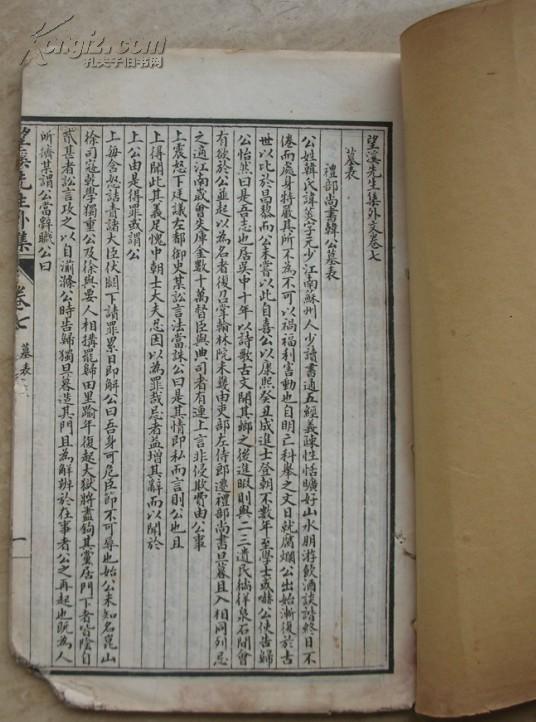 Kongfz.com
孔夫子旧书网
望溪先生集外文卷七
墓表
禮部尚書韓公墓表
公姓韓氏諱菼字元少江南蘇州人少讀書通五經義疎性恬曠好山水朋游飲酒談諧終日不
倦而處身特嚴其所不為不可以禍福利害動也自明亡科舉之文日就腐爛公出始漸復於古
世以此於昌黎而公未嘗以此自喜公以康熙癸丑成進士登朝不數年至學士或嚇公使告歸
公怡然曰是吾志也居吳中十年以詩歌古文開其鄉之後進暇則與二三遺民徜徉泉石間會
有欲於公並起以為名者復召掌翰林院未幾由吏部左侍郎遷禮部尚書旦暮且入相同列忌
之適江南歲會失庫金數十萬督臣與典司者有連上言非侵欺費由公事
上震怒下廷議左都御史某訟言法當誅公曰是其情即私而言則公也且
上得聞此其義足愧中朝士大夫忌因以為罪哉忌者益增其辭而以聞於
上公由是得罪或謂公
上每含怒詰責諸大臣伏闕下請罪累日即解公曰吾身可危臣節不可辱也始公未知名崑山
徐司寇乾學獨重公及徐與要人相搆罷歸田里踰年復起大獄將盡鉤其黨居門下者皆陰自
貳甚者訟言攻之以自湔滌公時告歸獨旦暮造其門且為解辨於在事者公之再起也既為人
所擠某謂公當辭職公曰
望溪先生外集
卷七
墓表
一